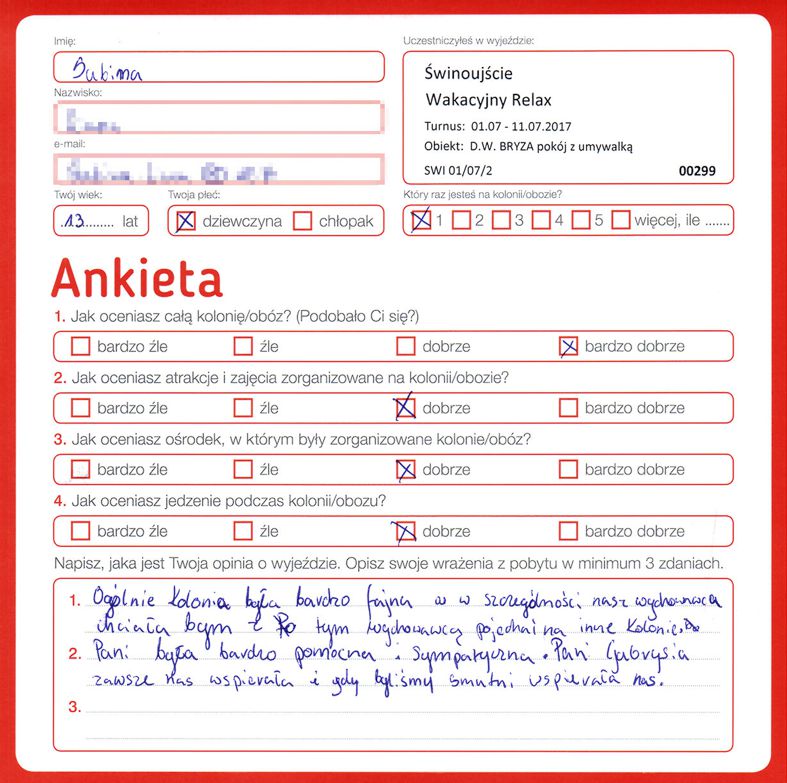 Imię:
Sabina
Nazwisko:
e-mail:
Twój wiek:
.13........ lat
Twoja płeć:
dziewczyna chłopak
Uczestniczyłeś w wyjeździe:
Świnoujście
Wakacyjny Relax
Turnus: 01.07 - 11.07.2017
Obiekt: D.W. BRYZA pokój z umywalką
SWI 01/07/2 00299
Który raz jesteś na kolonii/obozie?
1 2 3 4 5 więcej, ile .......
Ankieta
1. Jak oceniasz całą kolonię/obóz? (Podobało Ci się?)
bardzo źle źle dobrze bardzo dobrze
2. Jak oceniasz atrakcje i zajęcia zorganizowane na kolonii/obozie?
bardzo źle źle dobrze bardzo dobrze
3. Jak oceniasz ośrodek, w którym były zorganizowane kolonie/obóz?
bardzo źle źle dobrze bardzo dobrze
4. Jak oceniasz jedzenie podczas kolonii/obozu?
bardzo źle źle dobrze bardzo dobrze
Napisz, jaka jest Twoja opinia o wyjeździe. Opisz swoje wrażenia z pobytu w minimum 3 zdaniach.
1. Ogólnie kolonia była bardzo fajna w szczególności nasz wychowawca
chciała bym z tym wychowawcą pojechać na inne kolonie.
2. Pani była bardzo pomocna i sympatyczna. Pani Gabrysia
zawsze nas wspierała i gdy byliśmy smutni wspierała nas.
3.